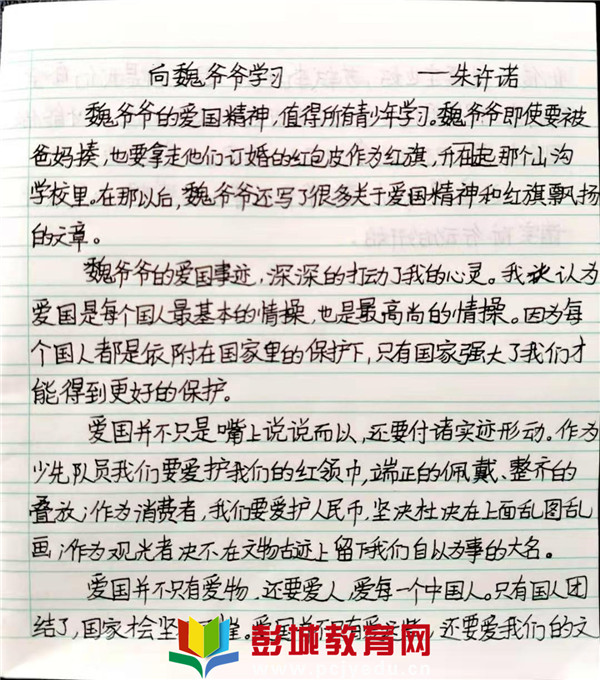 向魏爷爷学习 ——朱许诺
魏爷爷的爱国精神，值得所有青少年学习。魏爷爷即使要被
爸妈揍，也要拿走他们订婚的红包皮作为红旗，升在起那个山沟
学校里。在那以后，魏爷爷还写了很多关于爱国精神和红旗飘扬
的文章。
魏爷爷的爱国事迹，深深的打动了我的心灵。我认为
爱国是每个国人最基本的情操，也是最高尚的情操。因为每
个国人都是依附在国家里的保护下，只有国家强大了我们才
能得到更好的保护。
爱国并不只是嘴上说说而以，还要付诸实迹形动。作为
少先队员我们要爱护我们的红领巾，端正的佩戴、整齐的
叠放；作为消费者，我们要爱护人民币，坚决杜决在上面乱图乱
画；作为观光者决不在文物古迹上留下我们自以为事的大名。
爱国并不只有爱物，还要爱人，爱每一个中国人。只有国人团
结了，国家才会坚 。爱国并 还要爱我们的文
彭城教育网
www.pcjyedu.cn